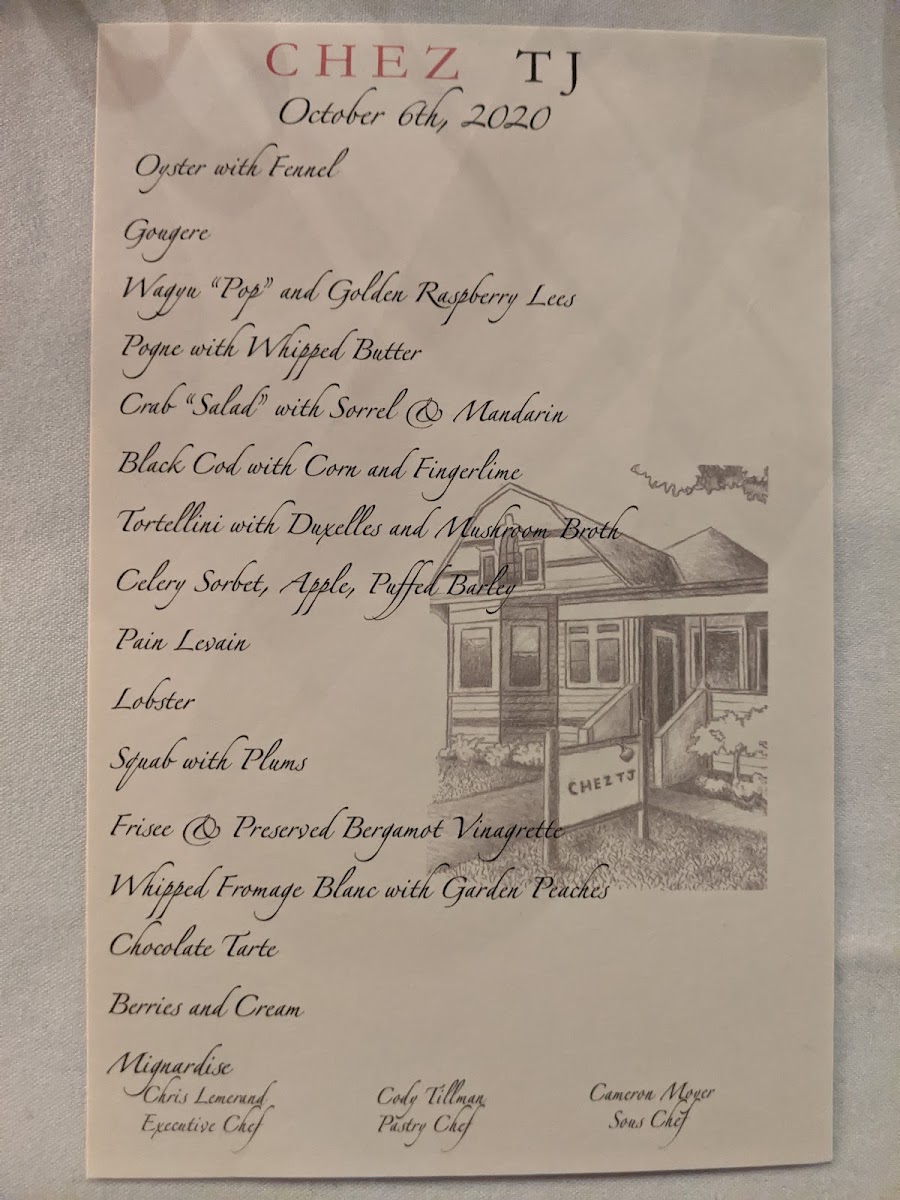 CHEZ TJ
October 6th, 2020
Oyster with Fennel
Gougere
Wagyu “Pop” and Golden Raspberry Lees
Pogne with Whipped Butter
Crab “Salad” with Sorrel & Mandarin
Black Cod with Corn and Fingerlime
Tortellini with Duxelles and Mushroom Broth
Celery Sorbet, Apple, Puffed Barley
Pain Levain
Lobster
Squab with Plums
CHEZ TJ
Frisee & Preserved Bergamot Vinagrette
Whipped Fromage Blanc with Garden Peaches
Chocolate Tarte
Berries and Cream
Mignardise
Chris Lemerand Cody Tillman Cameron Moyer
Executive Chef Pastry Chef Sous Chef